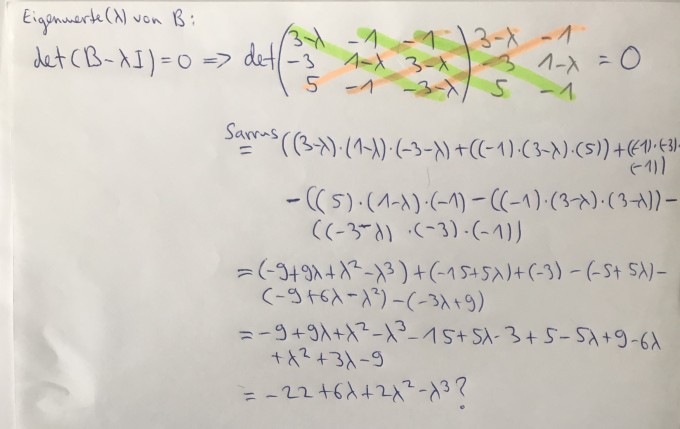 Eigenwerte(λ) von B:
det(B-λI)=0 => det(3-λ -1 -1) 3-λ -1
(-3 1-λ 3-λ) -3 1-λ = 0
(5 -1 -3-λ) 5 -1
Sarrus
= ((3-λ)·(1-λ)·(-3-λ)+((-1)·(3-λ)·(5))+((-1)·(-3)·
(-1))
-((5)·(1-λ)·(-1)-((-1)·(3-λ)·(3-λ))-
((-3-λ)·(-3)·(-1))
=(-9+9λ+λ²-λ³)+(-15+5λ)+(-3)-(-5+5λ)-
(-9+6λ-λ²)-(-3λ+9)
=-9+9λ+λ²-λ³-15+5λ-3+5-5λ+9-6λ
+λ²+3λ-9
=-22+6λ+2λ²-λ³?